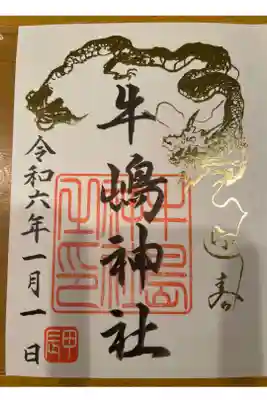 迎春
牛嶋神社
牛嶋神社之印
令和六年一月一日
甲辰